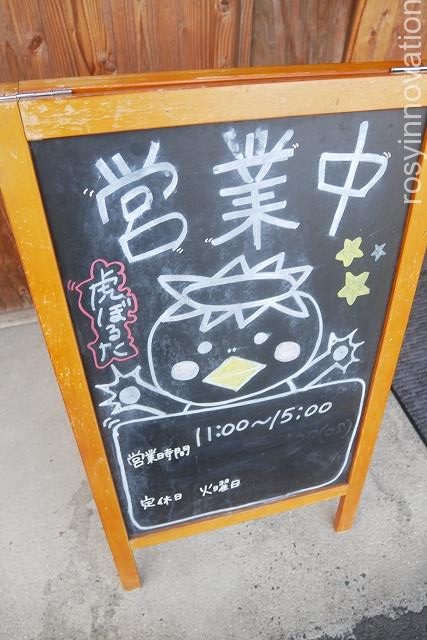 営業中
虎ぼるた
営業時間 11:00~15:00
定休日 火曜日
rosyinnovation